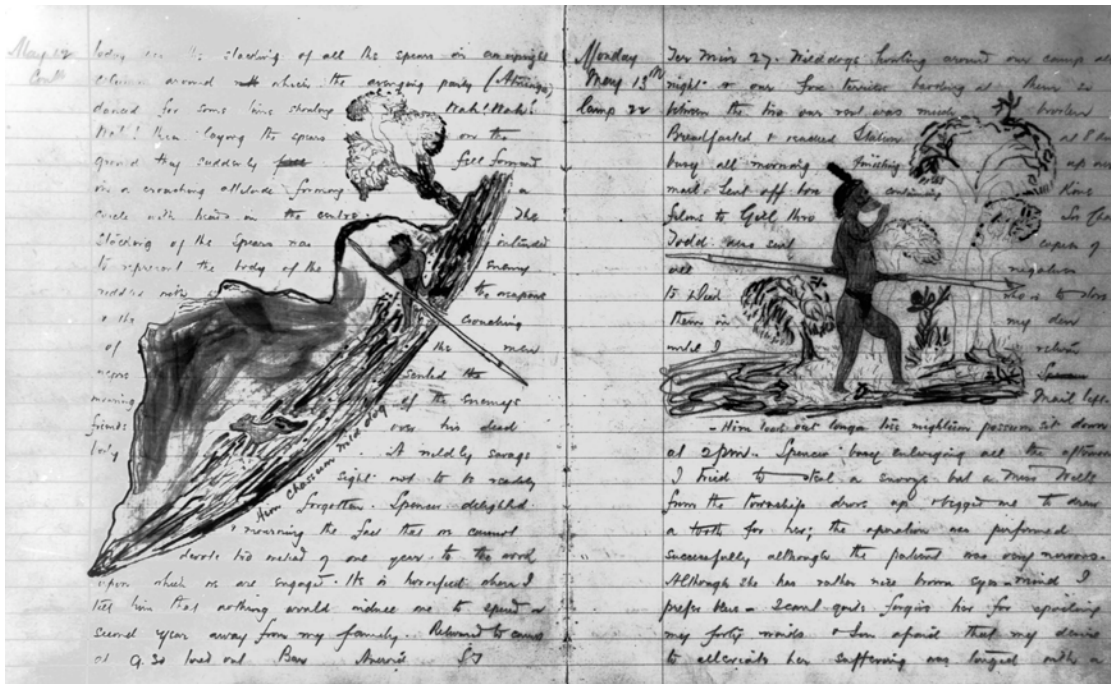 May 12 today was the stacking of all the spears in an upright
Contd column around which the avenging party (Atninga)
danced for some time shouting Wah! Wah!
Wah! then laying the spears on the
ground they suddenly fell forward
in a crouching attitude forming a
circle with heads in the centre. The
Stacking of the Spears was intended
to represent the body of the Enemy
riddled with the weapons
& the crouching
of the men
sented the
mourning of the Enemys
friends over his dead
body. A wildly savage
sight not to be readily
Him chassum wild dog
forgotten. Spencer delighted
& mourning the fact that we cannot
devote two instead of one year to the work
upon which we are engaged. He is horrified when I
tell him that nothing would induce me to spend a
second year away from my family. Returned to camp
at 9.30 turned out Bar Aneroid
Monday Ter Min 27. Wild dogs howling around our camp all
May 13th night & our fox terriers barking at them so
Camp 22 between the two our rest was much broken
Breakfasted & reached Station at 8
busy all morning finishing up
mail. Sent off two continuing
to Gill thro
Todd also sent copies of
all negatives
to who is to store
them in my den
until I return
Mail left
- Him look out longa tree mightum possum sit down
at 2pm. Spencer busy enlarging all the afternoon
I tried to steal a snooze but a Miss Wells
from the township drove up & begged me to draw
a tooth for her; the operation was performed
successfully although the patient was very nervous.
Although she has rather nice brown eyes - mind I
prefer blue - I cant quite forgive her for spoiling
my forty winks & Im afraid that my desire
to alleviate her suffering was tinged with a